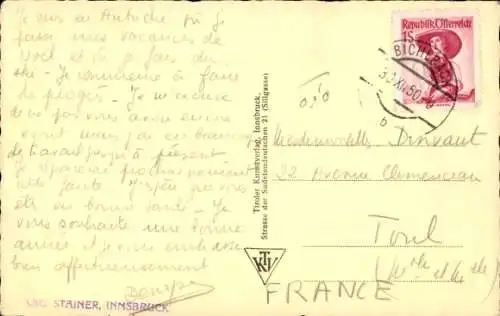 Je suis en Autriche où je
passe mes vacances de
Noël et je fais du
ski. Je commence à faire
de progès. Je m'excuse
de ne pas vous avoir encore
écrit mais j'ai eu beaucoup
de travail jusqu'à présent
J'espère
votre santé. J'espère que vous
êtes en bonne santé. Je
vous souhaite une bonne
année et je vous embrasse
bien affectueusement
LEO STAINER, INNSBRUCK
Tiroler Kunstverlag, Innsbruck,
Strasse der Sudetendeutschen 21 (Sillgasse)
TKV
Republik Österreich
1S
BICHLBACH
30.XII.50
b
Mademoiselle
22 Avenue Clemenceau
Toul
(Mthe et Mlle)
FRANCE